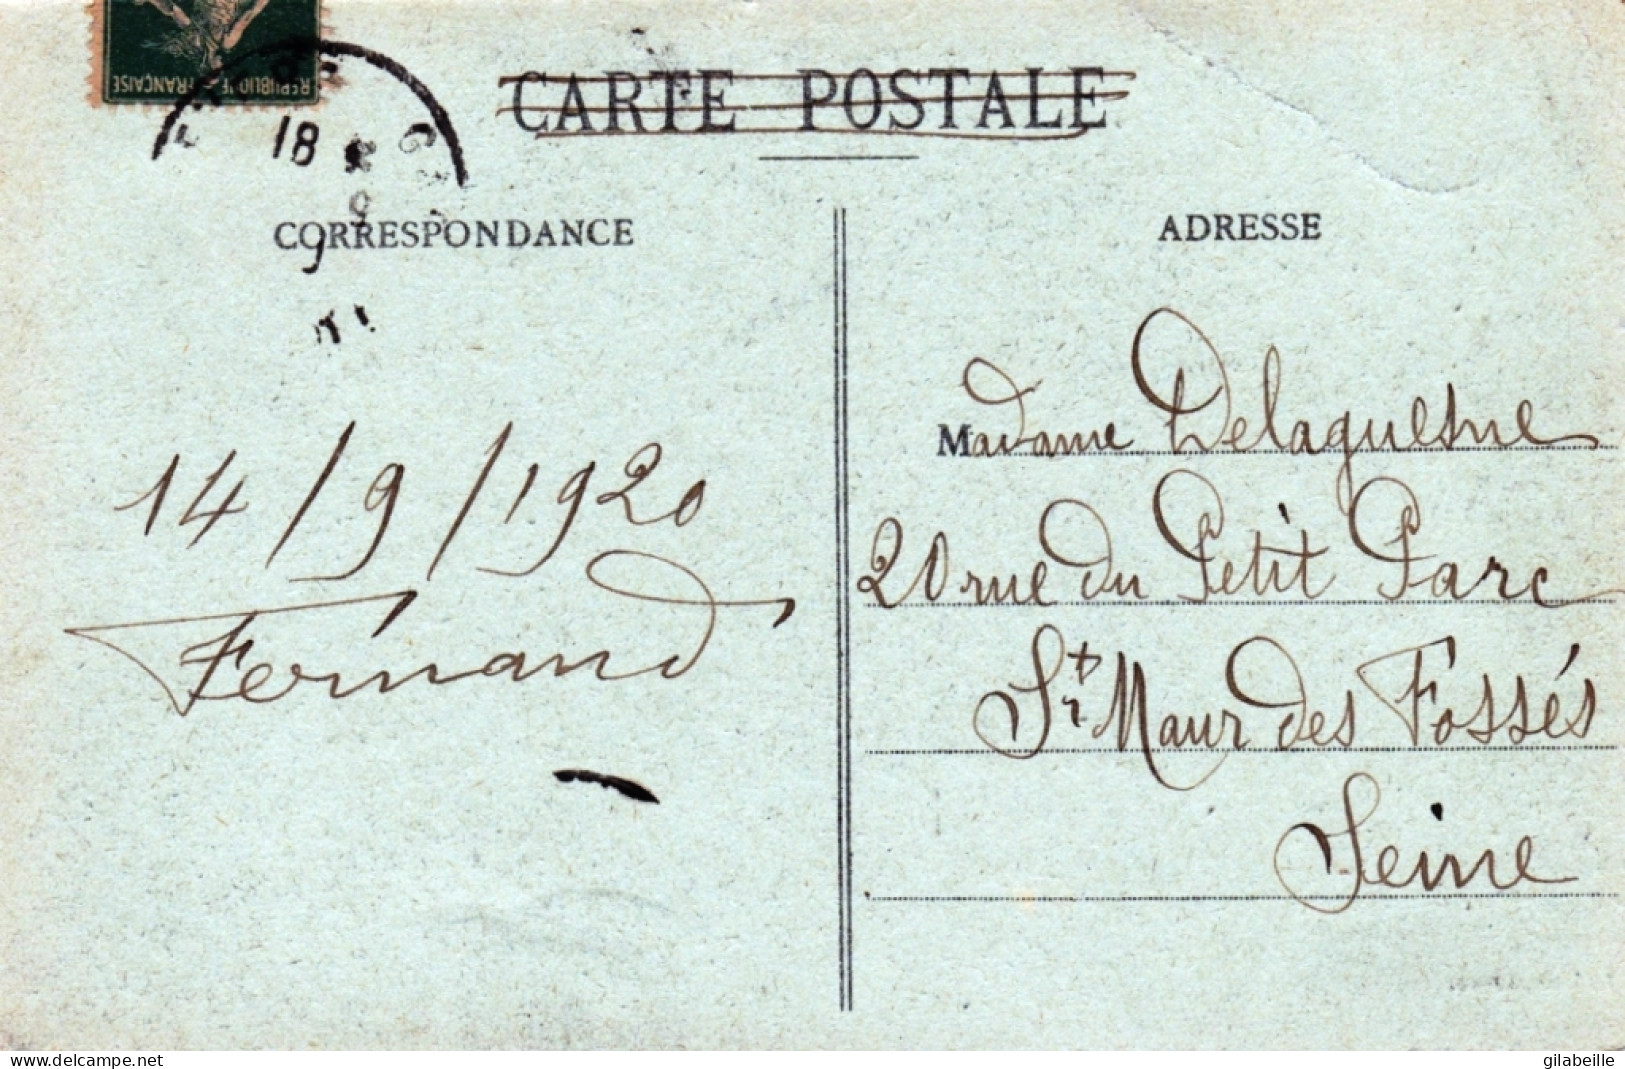 RÉPUBLIQUE FRANÇAISE
18
CARTE POSTALE
CORRESPONDANCE
ADRESSE
14/9/1920
Fernand
Madame Delaquesne
20 rue du Petit Parc
St Maur des Fossés
Seine
www.delcampe.net
gilabeille